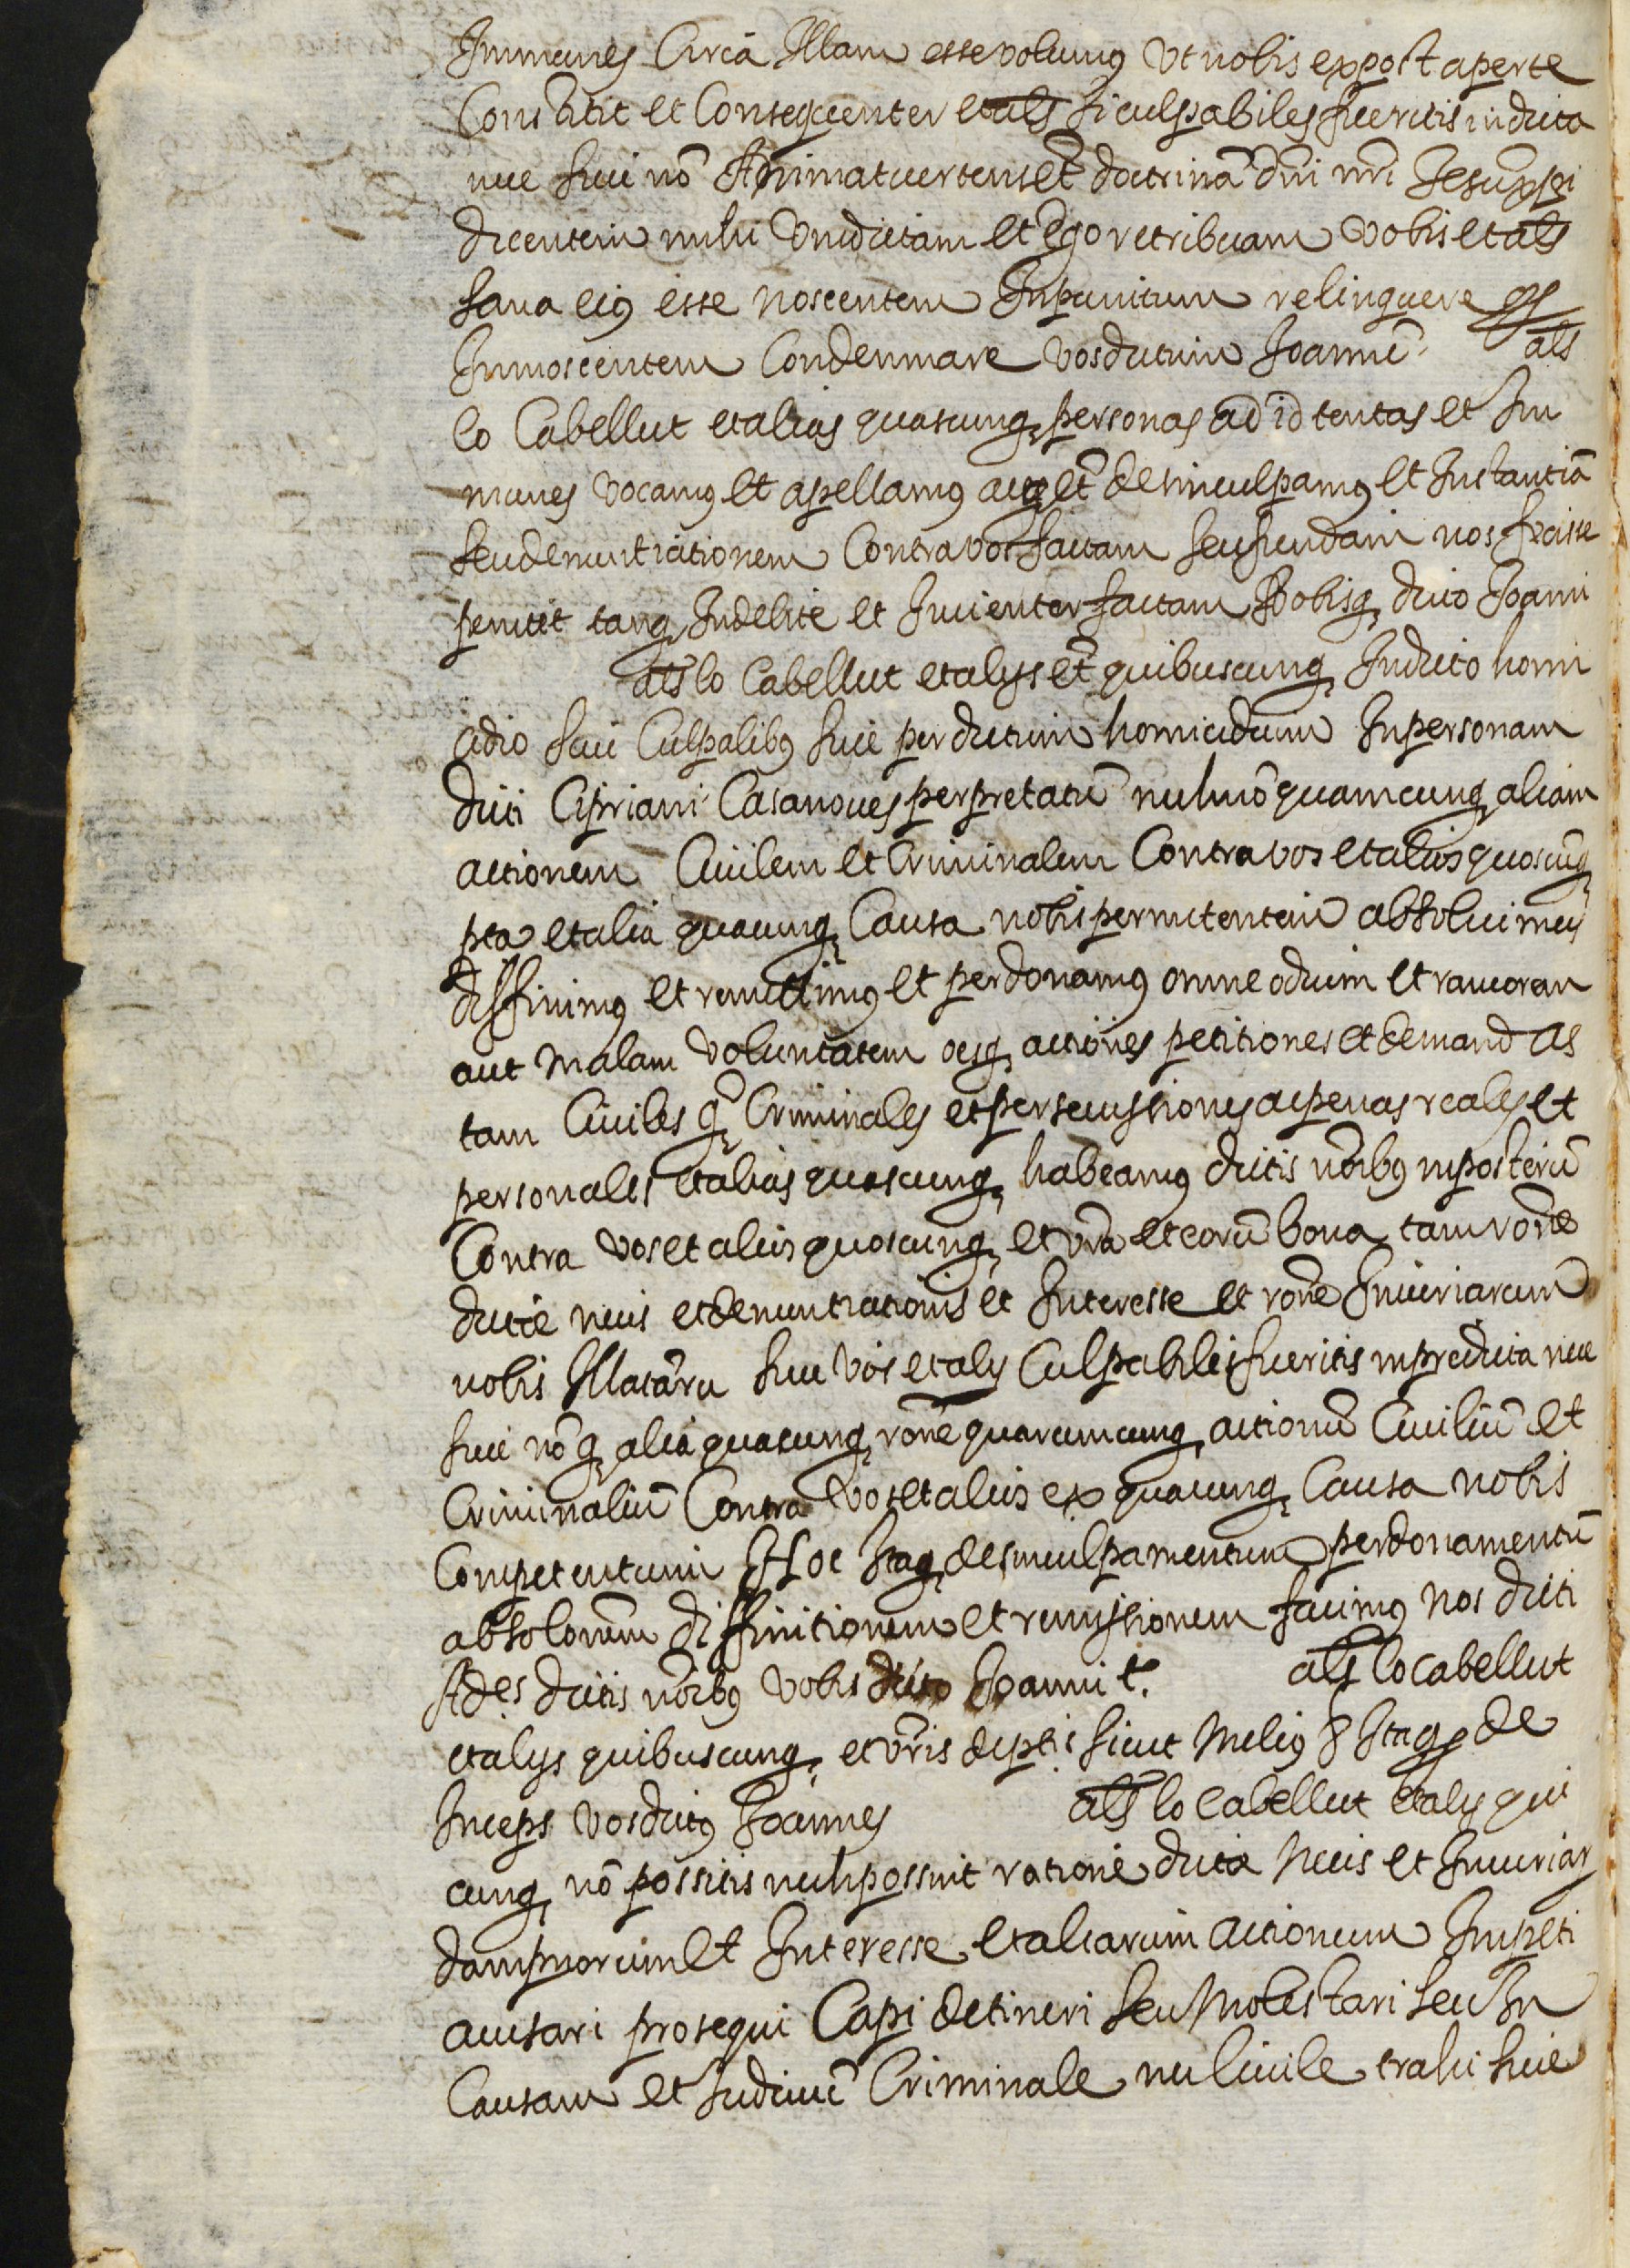 Immunes Circa Illam esse volumus vt nobis expost aperte
Constitit et Consequenter et als si culpabiles fueritis in dicta
nece siue nō Animaduertens et̄ doctrinā dn̄i nr̄i Jesu xpi̅
dicentem mihi vindictam et Ego retribuam vobis et als
sana eiꝰ esse noscentem Inpunitum relinquere qȝ
Innoscentem Condemnare vos dictum Joannē als
lo Cabellut et alias quascunqȝ personas ad id tentas et Im
munes vocamꝰ et apellamꝰ ac et̄ desinculpamꝰ et Instantiā
seu denuntiationem Contra vos factam seu fiendam nos fecisse
penitet tanqȝ Indebite et Iniuienter factam Vobisqȝ dicto Joanni
als lo Cabellut et alijs et̄ quibuscunqȝ In dicto homi
cidio siue Culpalibꝰ siue per dictum homicidium In personam
dicti Cipriani Casanoues perpretatū nec nō quamcunqȝ aliam
actionem Ciuilem et Criminalem Contra vos et alios quoscūqȝ
pta et alia quacunqȝ Causa nobis permitentem absoluimus
diffinimꝰ et remittimꝰ et perdonamꝰ omne odium et rancorem
aut malam voluntatem oesqȝ actiones petitiones et demandas
tam Ciuiles qȝ Criminales et persecussiones ac penas reales et
personales et alias quascunqȝ habeamꝰ dictis noībꝰ in posterū
Contra vos et alios quoscunqȝ et vrā et eorū bona tam rōne
dicte necis et denuntiationis et Interesse et rōne Iniuriarum
nobis Illatāru siue vos et alij Culpabiles fueritis in predicta nece
siue nō qȝ alia quacunqȝ rōne quarumcunqȝ actionū Ciuiliū et
Criminaliū Contra vos et alios ex quacunqȝ Causa nobis
Competentium Hoc Itaqȝ desinculpamentum perdonamentū
absolonem̄ diffinitionem et remissionem facimꝰ nos dicti
Ades dictis noībꝰ vobis dicto Joanni t. als lo cabellut
et alijs quibuscunqȝ et vrīs sicut Meliꝰ Itaqȝ de
Inceps vos dictꝰ Joannes als lo cabellut et alij qui
cunqȝ nō possitis nec possint ratione dicta Necis et Iniuriar
dampnorum et Interesse et aliarum actionum Impeti
acusari prosequi Capi detineri seu Molestari seu In
Causam et Iudiciū Criminale nec Ciuile trahi siue